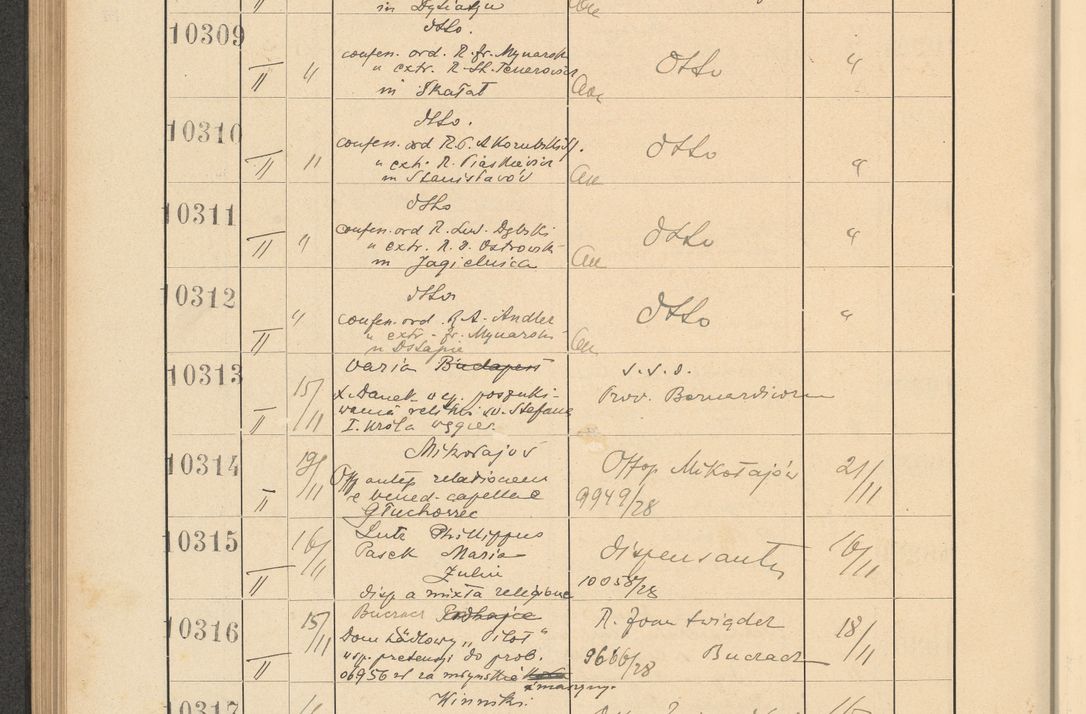 in
10309
II " dtto.
confess. ord. R. Fr. Mynarski
u extr. R. St.
in Skałat
dtto
"
10310
II " dtto.
confess. ord R. P.
u extr. R. Piaskiewicz
in Stanisławów
dtto
"
10311
II " dtto
confess. ord R. Lud. Dębski
u extr. R. J. Ostrowski
in Jagielnica
dtto
"
10312
II " dtto
confess. ord. R. A. Andler
u extr. fr. Mynarski
dtto
"
10313
II 15/11 varia Budapest
X. Danek w sp. poszuki-
wania relikwii św. Stefana
I. króla węgier.
s. s. s.
Prov. Bernardinorum
10314
II 19/11 Mikołajów
Off antep relationem
e bened. capellae
Głuchowiec
Off op Mikołajów
9949/28
21/11
10315
II 16/11 Lutz Philippus
Pasek Maria
Julia
disp a mixta religione
dispensantur
10058/28
16/11
10316
II 15/11 Buczacz Podhajce
Dom Ludowy "Piłot"
w sp. pretensji do prob.
zł za młyńskie
maszyny.
R. Joan
9666/28 Buczacz
18/11
10317